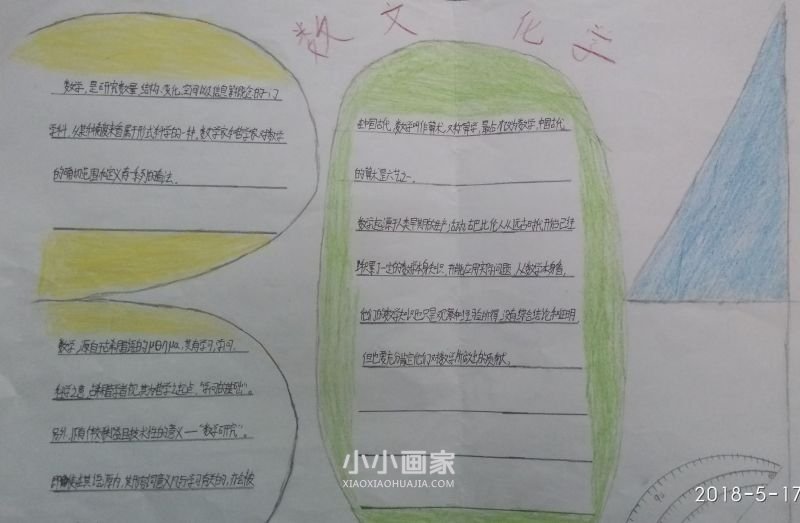 数 文 化 学
数学，是研究数量、结构、变化、空间以及信息等概念的一门
学科，从某种角度来看属于形式科学的一种，数学家和哲学家对数学
的确切范围和定义有一系列的看法。
数学，源自于古希腊语的μθημα，其有学习、学问、
科学之意。古希腊学者视其为哲学之起点，“学问的基础”。
另外，还有个较狭隘且技术性的意义——“数学研究”。
即使在其语源内，其形容词意义凡与学习有关的，亦会被
在中国古代，数学叫作算术，又称算学，最后才改为数学，中国古代
的算术是六艺之一。
数学起源于人类早期的生产活动，古巴比伦人从远古时代开始已经
积累了一定的数学知识，并能应用实际问题，从数学本身看，
他们的数学知识也只是观察和经验所得，没有综合结论和证明，
但也要充分肯定他们对数学所做出的贡献。
小小画家
XIAOXIAOHUAJIA.COM
2018-5-17